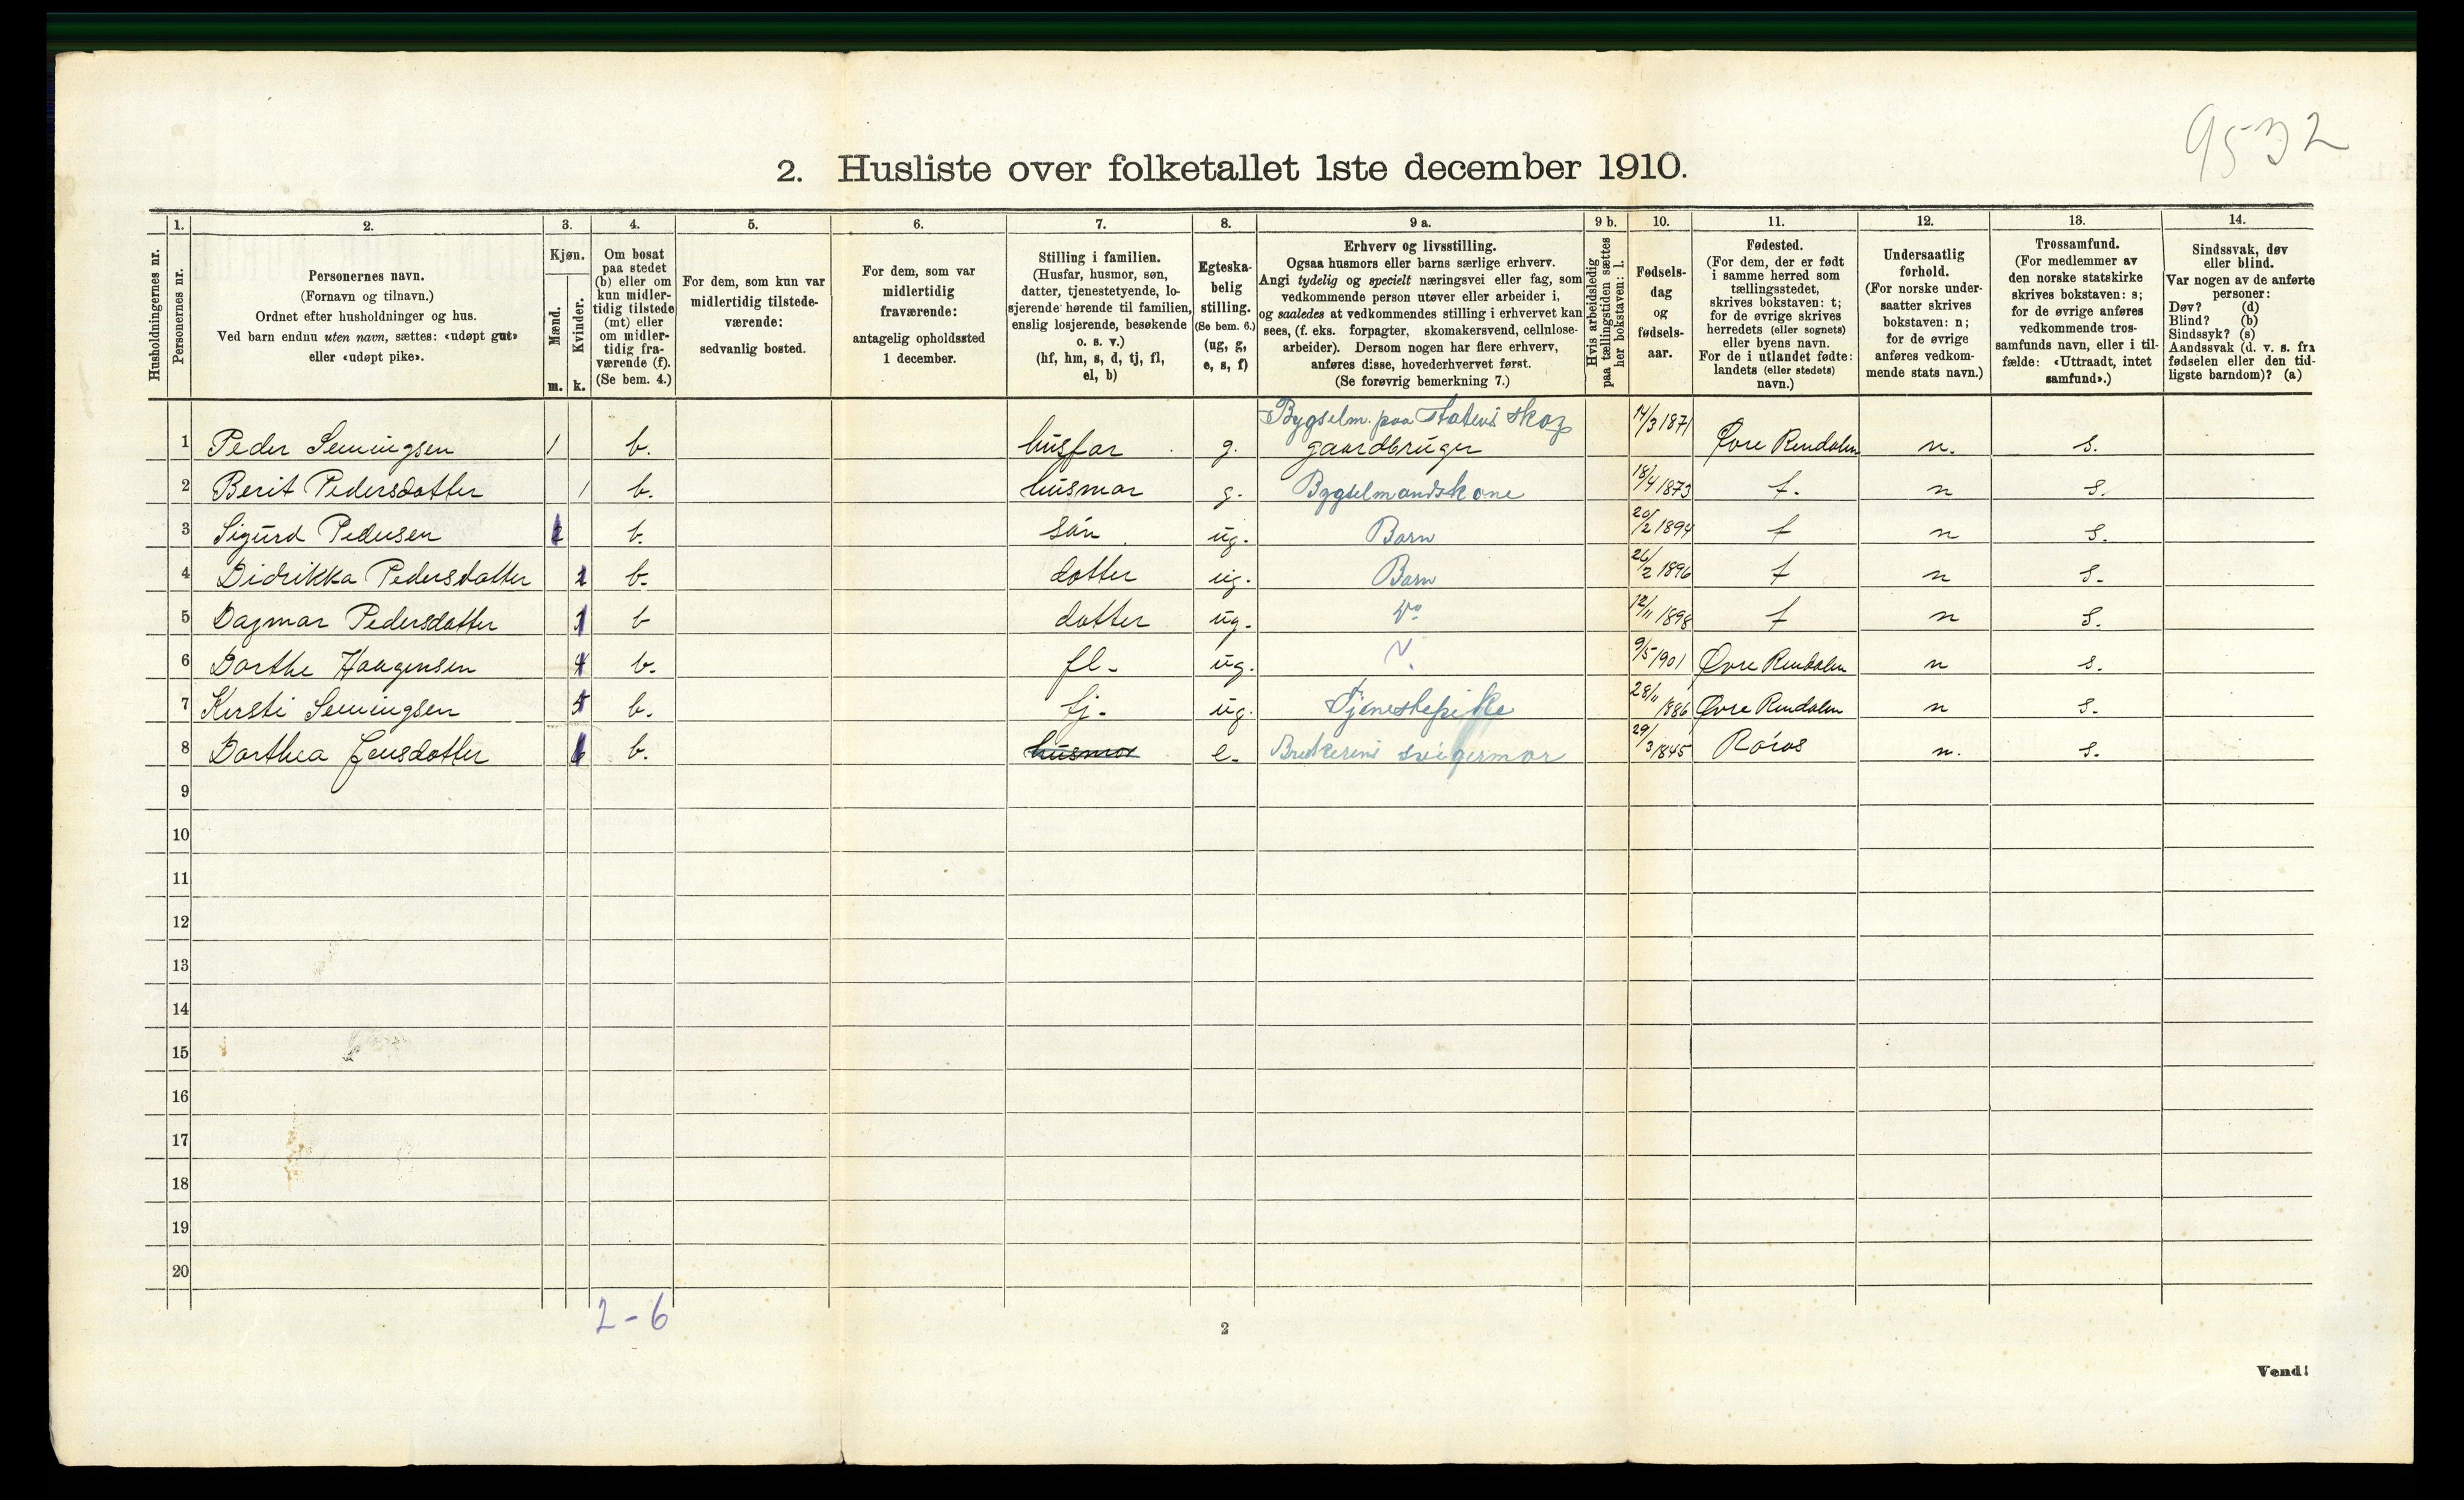 9532
2. Husliste over folketallet 1ste december 1910.
1. 2. 3. 4. 5. 6. 7. 8. 9 a. 9 b. 10. 11. 12. 13. 14.
Husholdningernes nr.
Personernes nr.
Personernes navn.
(Fornavn og tilnavn.)
Ordnet efter husholdninger og hus.
Ved barn endnu uten navn, sættes: «udøpt gut»
eller «udøpt pike».
Kjøn.
Mænd.
Kvinder.
m. k.
Om bosat
paa stedet
(b) eller om
kun midler-
tidig tilstede
(mt) eller
om midler-
tidig fra-
værende (f).
(Se bem. 4.)
For dem, som kun var
midlertidig tilstede-
værende:
sedvanlig bosted.
For dem, som var
midlertidig
fraværende:
antagelig opholdssted
1 december.
Stilling i familien.
(Husfar, husmor, søn,
datter, tjenestetyende, lo-
sjerende hørende til familien,
enslig losjerende, besøkende
o. s. v.)
(hf, hm, s, d, tj, fl,
el, b)
Egteska-
belig
stilling.
(Se bem. 6.)
(ug, g,
e, s, f)
Erhverv og livsstilling.
Ogsaa husmors eller barns særlige erhverv.
Angi tydelig og specielt næringsvei eller fag, som
vedkommende person utøver eller arbeider i,
og saaledes at vedkommendes stilling i erhvervet kan
sees, (f. eks. forpagter, skomakersvend, cellulose-
arbeider). Dersom nogen har flere erhverv,
anføres disse, hovederhvervet først.
(Se forøvrig bemerkning 7.)
Hvis arbeidsledig
paa tællingstiden sættes
her bokstaven: l.
Fødsels-
dag
og
fødsels-
aar.
Fødested.
(For dem, der er født
i samme herred som
tællingsstedet,
skrives bokstaven: t;
for de øvrige skrives
herredets (eller sognets)
eller byens navn.
For de i utlandet fødte:
landets (eller stedets)
navn.)
Undersaatlig
forhold.
(For norske under-
saatter skrives
bokstaven: n;
for de øvrige
anføres vedkom-
mende stats navn.)
Trossamfund.
(For medlemmer av
den norske statskirke
skrives bokstaven: s;
for de øvrige anføres
vedkommende tros-
samfunds navn, eller i til-
fælde: «Uttraadt, intet
samfund».)
Sindssvak, døv
eller blind.
Var nogen av de anførte
personer:
Døv? (d)
Blind? (b)
Sindssyk? (s)
Aandssvak (d. v. s. fra
fødselen eller den tid-
ligste barndom)? (a)
Bygselm. paa Statens skog
1 Peder Semingsen 1 b. husfar g. gaardbruger 14/3 1871 Øvre Rendalen n. s.
2 Berit Pedersdotter 1 b. husmor g. Bygselmandskone 18/4 1873 t. n s.
3 Sigurd Pedersen 2 b. sön ug. Barn 20/2 1894 t n s.
4 Didrikka Pedersdatter 2 b. dotter ug. Barn 26/2 1896 t n s.
5 Dagmar Pedersdatter 3 b dotter ug. Do 12/11 1898 t n s.
6 Dorthe Haagensen 4 b. fl. ug. 9/5 1901 Øvre Rendalen n s.
7 Kersti Semingsen 5 b. tj. ug. Tjenestepike 28/11 1886 Øvre Rendalen n s.
8 Dorthea Jensdotter 6 b. husmor e. Brukerens svigermor 29/3 1845 Röros n. s.
9
10
11
12
13
14
15
16
17
18
19
20
2-6
2
Vend!